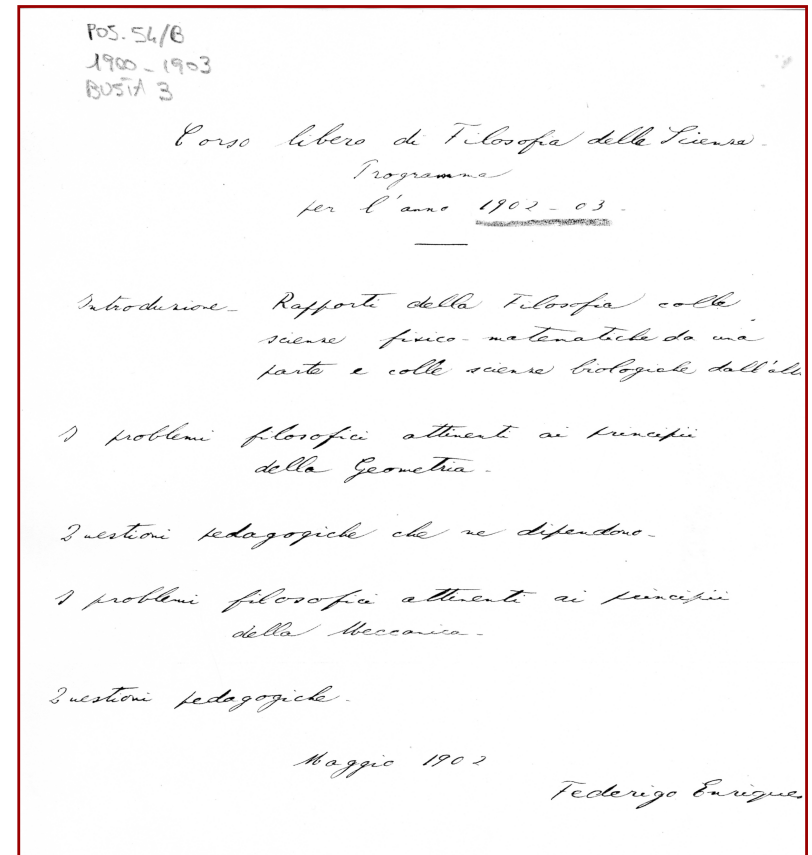 POS. 54/B
1900-1903
BUSTA 3
Corso libero di Filosofia della Scienza.
Programma
per l'anno 1902-03.
Introduzione - Rapporti della Filosofia colle
scienze fisico-matematiche da una
parte e colle scienze biologiche dall'alt
I problemi filosofici attinenti ai principii
della Geometria.
Questioni pedagogiche che ne dipendono.
I problemi filosofici attinenti ai principii
della Meccanica.
Questioni pedagogiche.
Maggio 1902
Federigo Enriques